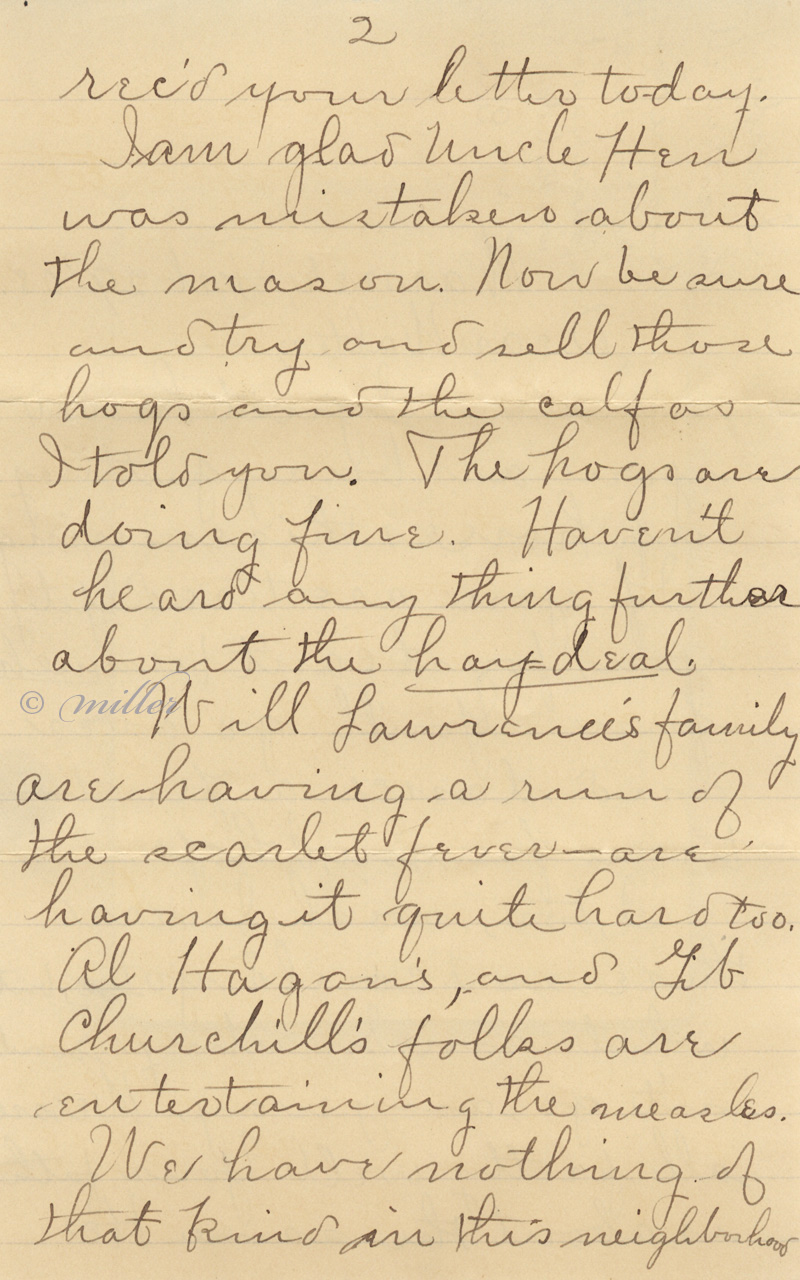 2
rec'd your letter today.
I am glad Uncle Hen
was mistaken about
the mason. Now be sure
and try and sell those
hogs and the calf as
I told you. The hogs are
doing fine. Haven't
heard any thing further
about the hay-deal.
© miller
Will Lawrence's family
are having a run of
the scarlet fever—are
having it quite hard too.
Al Hagan's, and
Churchill's folks are
entertaining the measles.
We have nothing of
that kind in this neighborhood